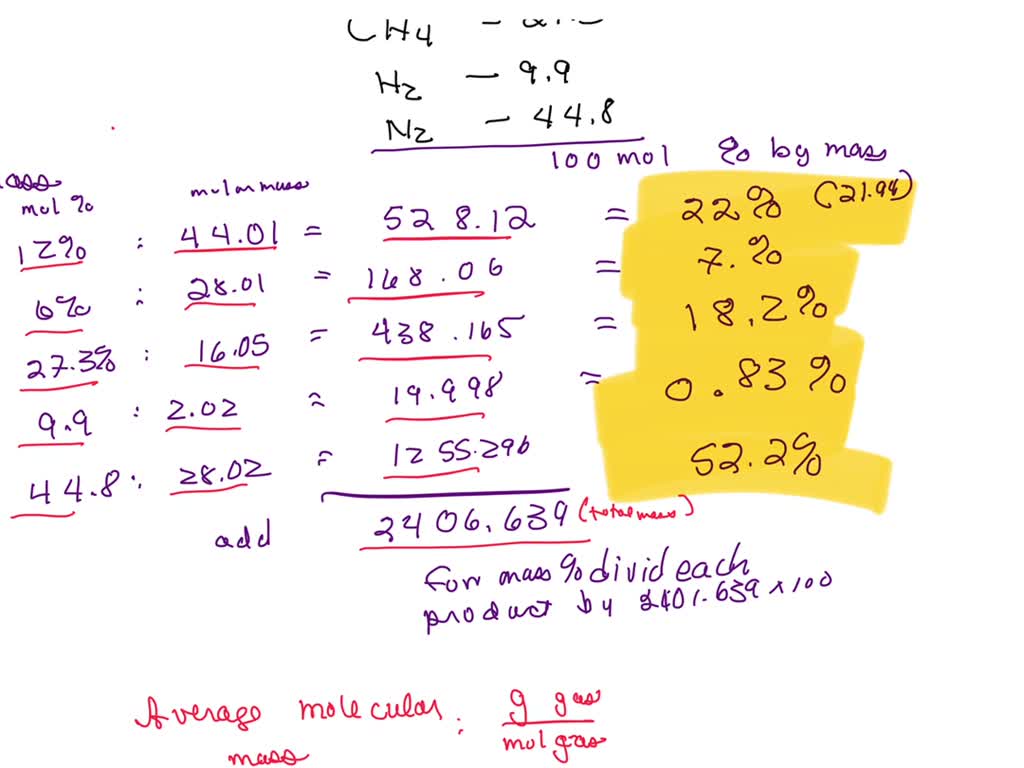 CH4 –
H2 – 9.9
N2 – 44.8
100 mol % by mass
mol % molar mass
12% : 44.01 = 528.12 = 22% (21.94)
6% : 28.01 = 168.06 = 7.%
27.3% : 16.05 = 438.165 = 18.2%
9.9 : 2.02 = 19.998 = 0.83%
44.8 : 28.02 = 1255.296 52.2%
add 2406.639 (total mass)
For mass % divid each
product by 2401.639 x 100
Average molecular : g gas
mass mol gas